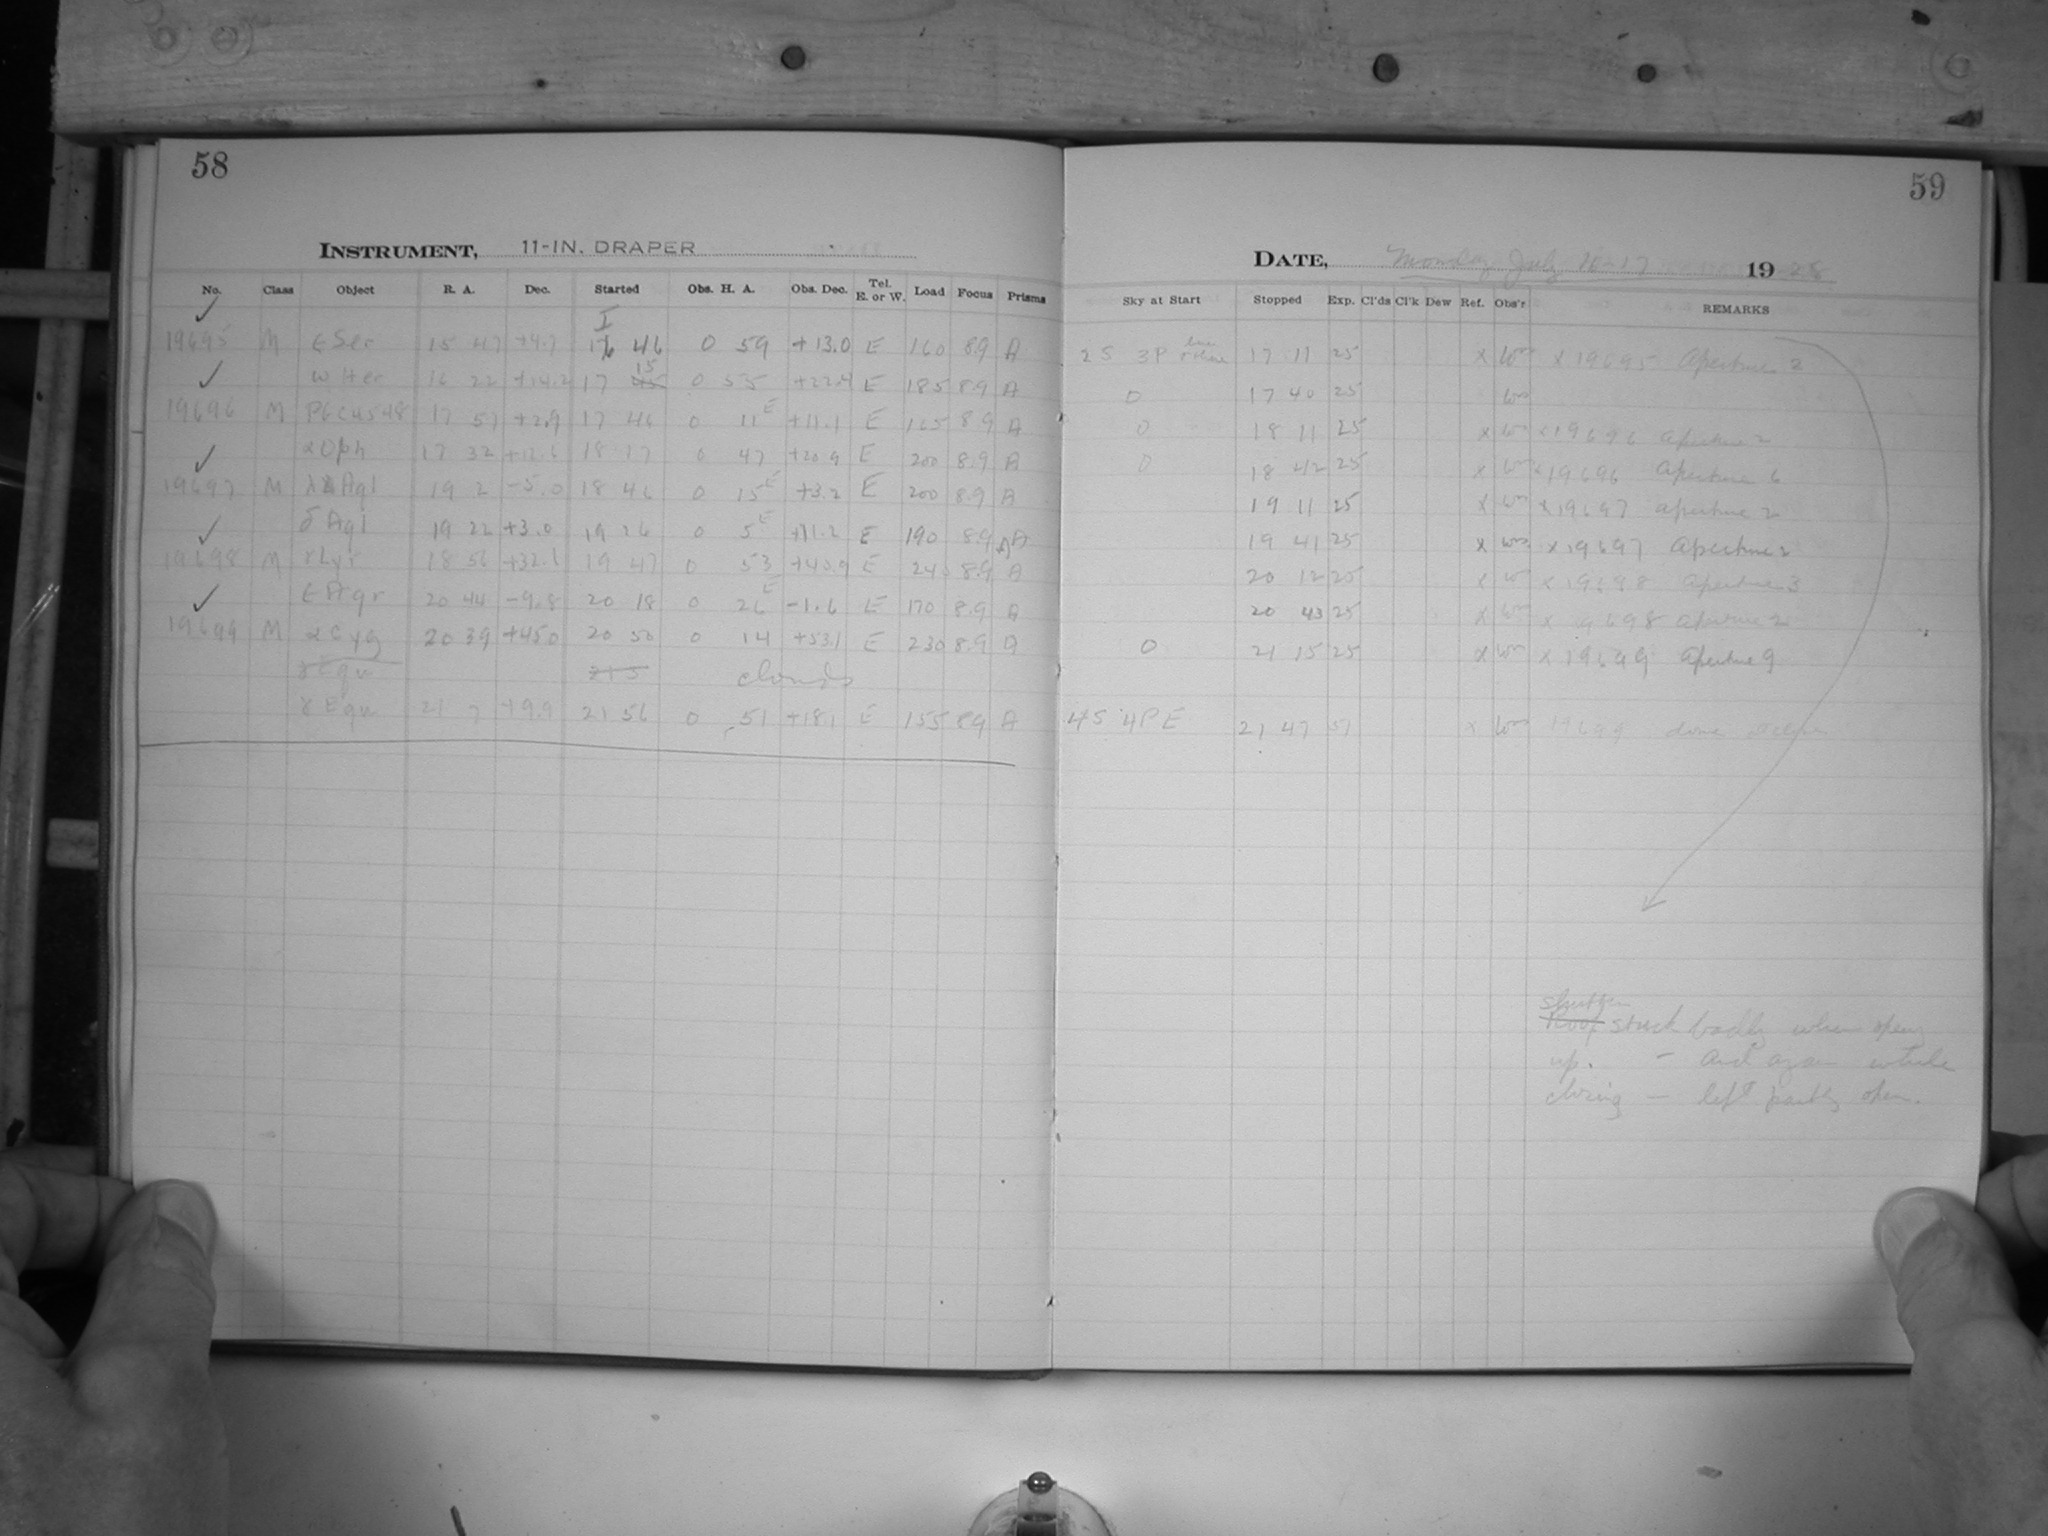 58
INSTRUMENT, 11-IN. DRAPER
No. Class Object R. A. Dec. Started Obs. H. A. Obs. Dec. Tel. E. or W. Load Focus Prisms
19695 M ε Ser 15 47 +4.7 16 46 0 59 +13.0 E 160 8.9 A
ω Her 16 22 +14.2 17 15 0 55 +22.4 E 185 8.9 A
19696 M PGC4548 17 57 +2.9 17 46 0 11 E +11.1 E 165 8.9 A
α Oph 17 32 +12.6 18 17 0 47 +20.9 E 200 8.9 A
19697 M λ Aql 19 2 -5.0 18 46 0 15 E +3.2 E 200 8.9 A
δ Aql 19 22 +3.0 19 26 0 5 E +11.2 E 190 8.9 A
19698 M γ Lyr 18 56 +32.6 19 47 0 53 +40.9 E 240 8.9 A
ε Aqr 20 44 -9.8 20 18 0 26 E -1.6 E 170 8.9 A
19699 M α Cyg 20 39 +45.0 20 50 0 14 +53.1 E 230 8.9 A
γ Equ 21 5 clouds
γ Equ 21 7 +9.9 21 56 0 51 +18.1 E 155 8.9 A
59
DATE, Monday July 16-17 1928
Sky at Start Stopped Exp. Cl'ds Cl'k Dew Ref. Obs'r REMARKS
2S 3P 17 11 25 x x 19695 Aperture 2
0 17 40 25
0 18 11 25 x x 19696 aperture 2
0 18 42 25 x x 19696 aperture 6
19 11 25 x x 19697 aperture 2
19 41 25 x x 19697 aperture 2
20 12 25 x x 19698 aperture 3
20 43 25 x x 19698 aperture 2
0 21 15 25 x x 19699 aperture 9
4S 4P E 21 47 51 x 19699
shutter
Roof stuck badly when opening
up. - and again while
closing - left partly open.